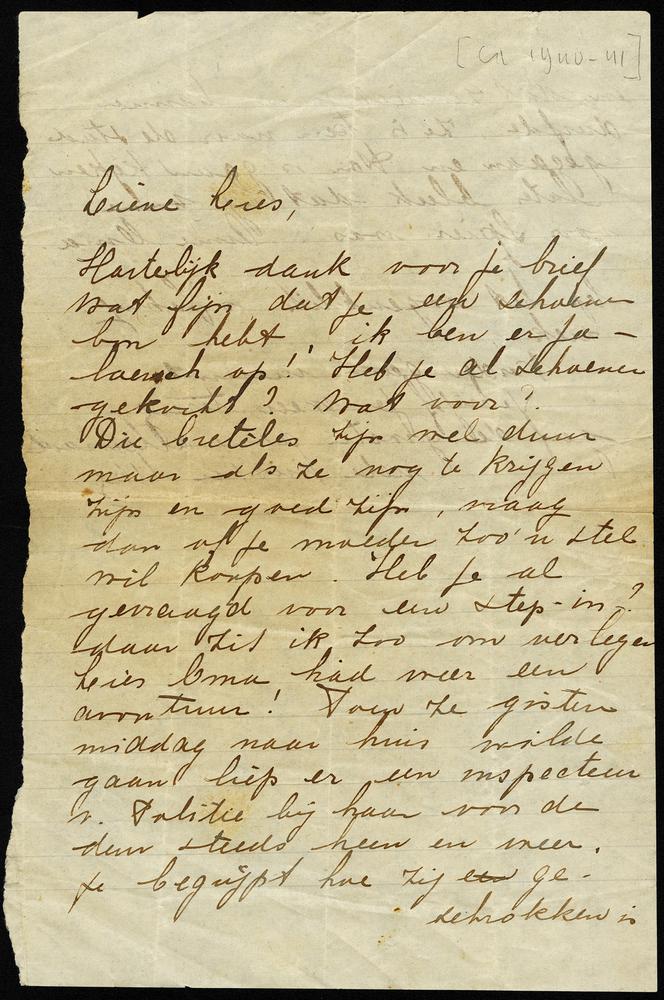 Lieve Lies,
Hartelijk dank voor je brief
wat fijn dat je een schoenen
bon hebt, ik ben er ja-
loersch op! Heb je al schoenen
gekocht? Wat voor?
Die bretéles zijn wel duur
maar als ze nog te krijgen
zijn en goed zijn, vraag
dan of je moeder zoo'n stel
wil koopen. Heb je al
gevraagd voor een step-in?
daar zit ik zoo om verlegen
Lies Oma had weer een
avontuur! Toen ze gisteren
middag naar huis wilde
gaan liep er een inspecteur
v. Politie bij haar voor de
deur steeds heen en weer.
Je begrijpt hoe zij ge-
schrokken is